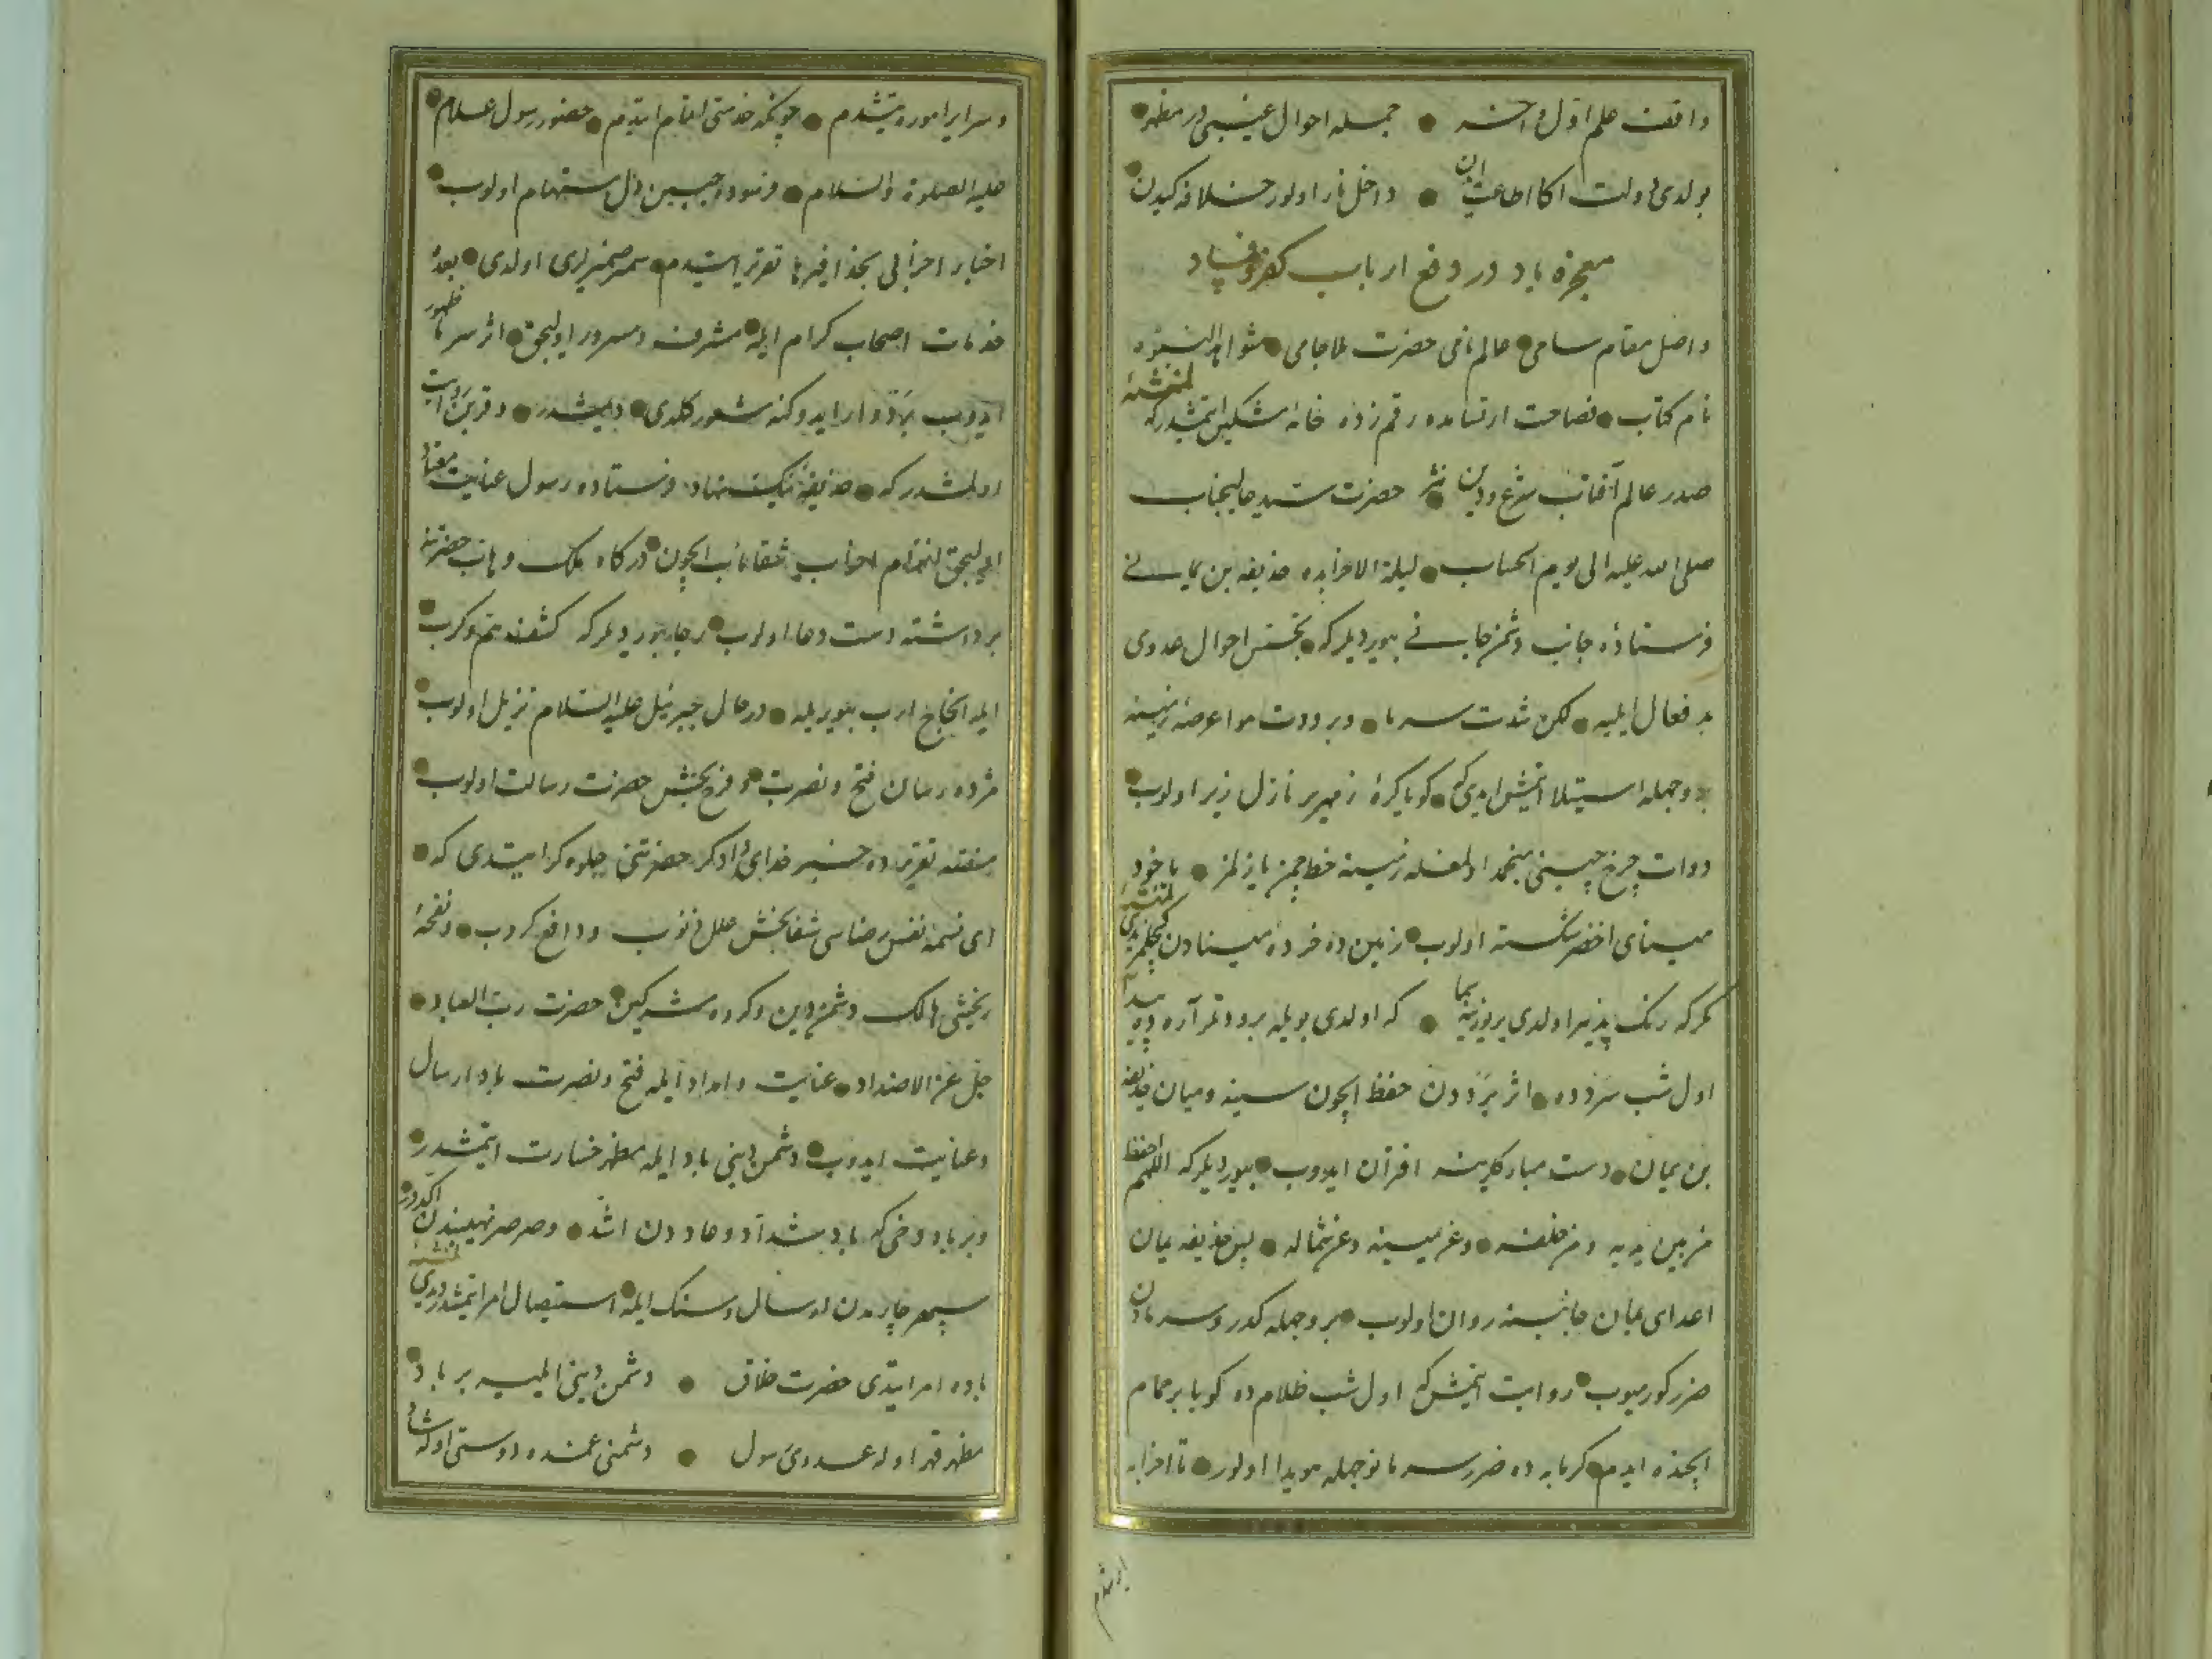 واقف علم اول و آخر ● جمله احوال غیبی در مظهر ●
بولدی دولت اکا اطاعت ایدن ● داخل نار اولور خلافه کیدن ●
معجزه باد در دفع ارباب کفر و فساد
واصل مقام سامی ● عالم نامی حضرت ملا جامی ● شواهد النبوه
نام کتاب ● فصاحت ارتسامده رقم زده خامه مشکین ایتمشدرکه
صدر عالم آفتاب شرع و دین نثر حضرت سید عالیجناب
صلی الله علیه الی یوم الحساب ● لیلة الاحزابده حذیفه بن یمانی
فرستاده جانب دشمن جانی بیوردیلرکه ● تجسس احوال عدوی
بد فعال ایلیه ● لکن شدت سرما ● و برودت هوا عرصه زمینه
بر وجهله استیلا ایتمش ایدی که ● کویا کره زمهریر نازل زیر اولوب ●
دوات چرخ چینی منجمد اولمغله زمینه خط چمن یازلمز ● یا خود
مینای اخضر شکسته اولوب ● زمین ده خرده مینادن
کرکه رنک پذیر اولدی یوزینه ● که اولدی بویله برودتلر آره ده
اول شب سرده ● اثر بردن حفظ ایچون سینه و میان حذیفه
بن یمان ● دست مبارکلرینه اقران ایدوب ● بیوردیلرکه اللهم احفظ
من بین یدیه و من خلفه ● و عن یمینه و عن شماله ● پس حذیفه یمان
اعدای عیان جانبینه روان اولوب ● بر وجهله کدر و سرمادن
ضرر کورمیوب ● روایت ایتمش که اول شب ظلام ده کویا بر حمام
ایچنده ایدم ● کرمابه ده ضرر سرما نه وجهله هویدا اولور ● تا احزابه
و سرایر اموره یتشدم ● چونکه خدمتی اتمام ایتدم ● حضور رسول علام ●
علیه الصلوة والسلام ● فرسوده جبین دل مستهام اولوب ●
اخبار احزابی بحذافیرها تقریر ایتدم ● سمر ضمیرلری اولدی ● بعده
خدمات اصحاب کرام ایله ● مشرف و مسرور اولیجق ● اثر سرما ظهور
ایدوب برد وار ایدوکنه شعور کلدی ● دیمشدر ● و قرین روایت
اولمشدرکه ● حذیفه نیک نهاد فرستاده رسول عنایت معتاد
اولیجق انهزام احزاب شقامآب ایچون ● درکاه ملک وهاب حضرتنه
برداشته دست دعا اولوب ● رجا بیوردیلرکه کشف هم و کرب ●
ایله انجاح ارب بیوریله ● در حال جبرئیل علیه السلام نزیل اولوب ●
مژده رسان فتح و نصرت ● و فرح بخش حضرت رسالت اولوب ●
منصه تقریرده خبیر خدای دادکر حضرتنی جلوه کر ایتدی که ●
ای نسمه نفس رضاسی شفابخش علل ذنوب و دافع کروب ● و نفحه
رنجشی هالک دشمن دین و کروه مشرکین ● حضرت رب العباد ●
جل عن الاضداد ● عنایت و امداد ایله فتح و نصرت باد ارسال
و عنایت ایدوب ● دشمن دینی باد ایله مظهر خسارت ایتمشدر ●
و بر باد دخی که باد شداد و عاددن اشد ● و صرصر نهیبندن اکددر ●
سپهر چارمدن ارسال و سنک ایله ● استیصاله امر ایتمشدر دیدی
باده امر ایتدی حضرت خلاق ● دشمن دینی ایلیه بر باد ●
مظهر قهر اوله عدوی رسول ● دشمنی غمده دوستی اوله شاد